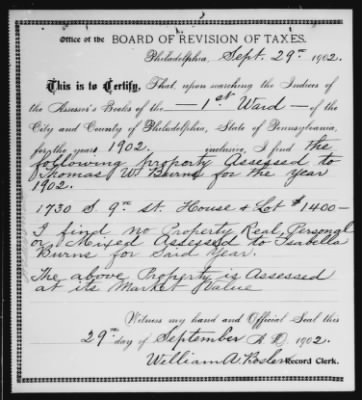 Office of the BOARD OF REVISION OF TAXES.
Philadelphia, Sept. 29th 1902.
This is to Certify, That, upon searching the Indices of
the Assessor's Books of the — 1st Ward — of the
City and County of Philadelphia, State of Pennsylvania,
for the years 1902. inclusive, I find the
following property Assessed to
Thomas W. Burns for the year
1902.
1730 S 9th St. House & Lot $1400—
I find no Property Real, Personal
or Mixed Assessed to Isabella
Burns for Said Year.
The above Property is Assessed
at its Market Value
Witness my hand and Official Seal this
29th day of September A. D. 1902.
William A. Rosler Record Clerk.